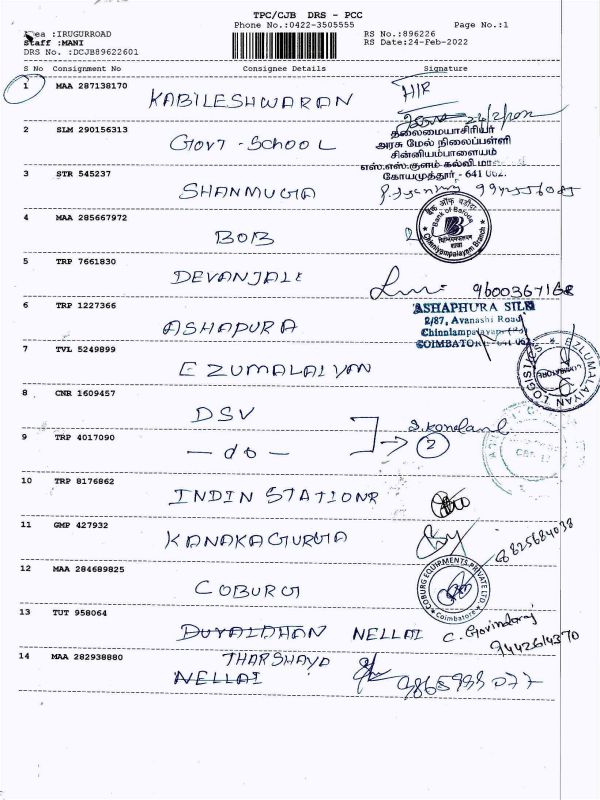 TPC/CJB DRS - PCC
Phone No.:0422-3505555 Page No.:1
Area :IRUGURROAD RS No.:896226
Staff :MANI RS Date:24-Feb-2022
DRS No. :DCJB89622601
S No Consignment No Consignee Details Signature
1 MAA 287138170 KABILESHWARAN H/R
24/2/2022
2 SLM 290156313 GOVT - SCHOOL
தலைமையாசிரியர்
அரசு மேல் நிலைப்பள்ளி
சின்னியம்பாளையம்
எஸ்.எஸ்.குளம் கல்வி
கோயமுத்தூர் - 641 062.
3 STR 545237 SHANMUGA
4 MAA 285667972 BOB
बैंक ऑफ़ बड़ौदा
Bank of Baroda
Chinniyampalayam Branch
5 TRP 7661830 DEVANJALI 9600367168
6 TRP 1227366 ASHAPURA
ASHAPHURA SILK
2/87, Avanashi Road
Chinniampalayam (Po)
COIMBATORE - 641 062
7 TVL 5249899 EZUMALAIYAN
EZLUMALAIYAN LOGISTICS
COIMBATORE
8 CNR 1609457 DSV
9 TRP 4017090 - do - 2
10 TRP 8176862 INDIN STATIONR
11 GMP 427932 KANAKAGURGA
8825684038
12 MAA 284689825 COBURG
COBURG EQUIPMENTS PRIVATE LTD
Coimbatore
13 TUT 958064 DUYALDHAN NELLAI C. Govindaraj
9442614370
14 MAA 282938880 THARSHAYD
NELLAI